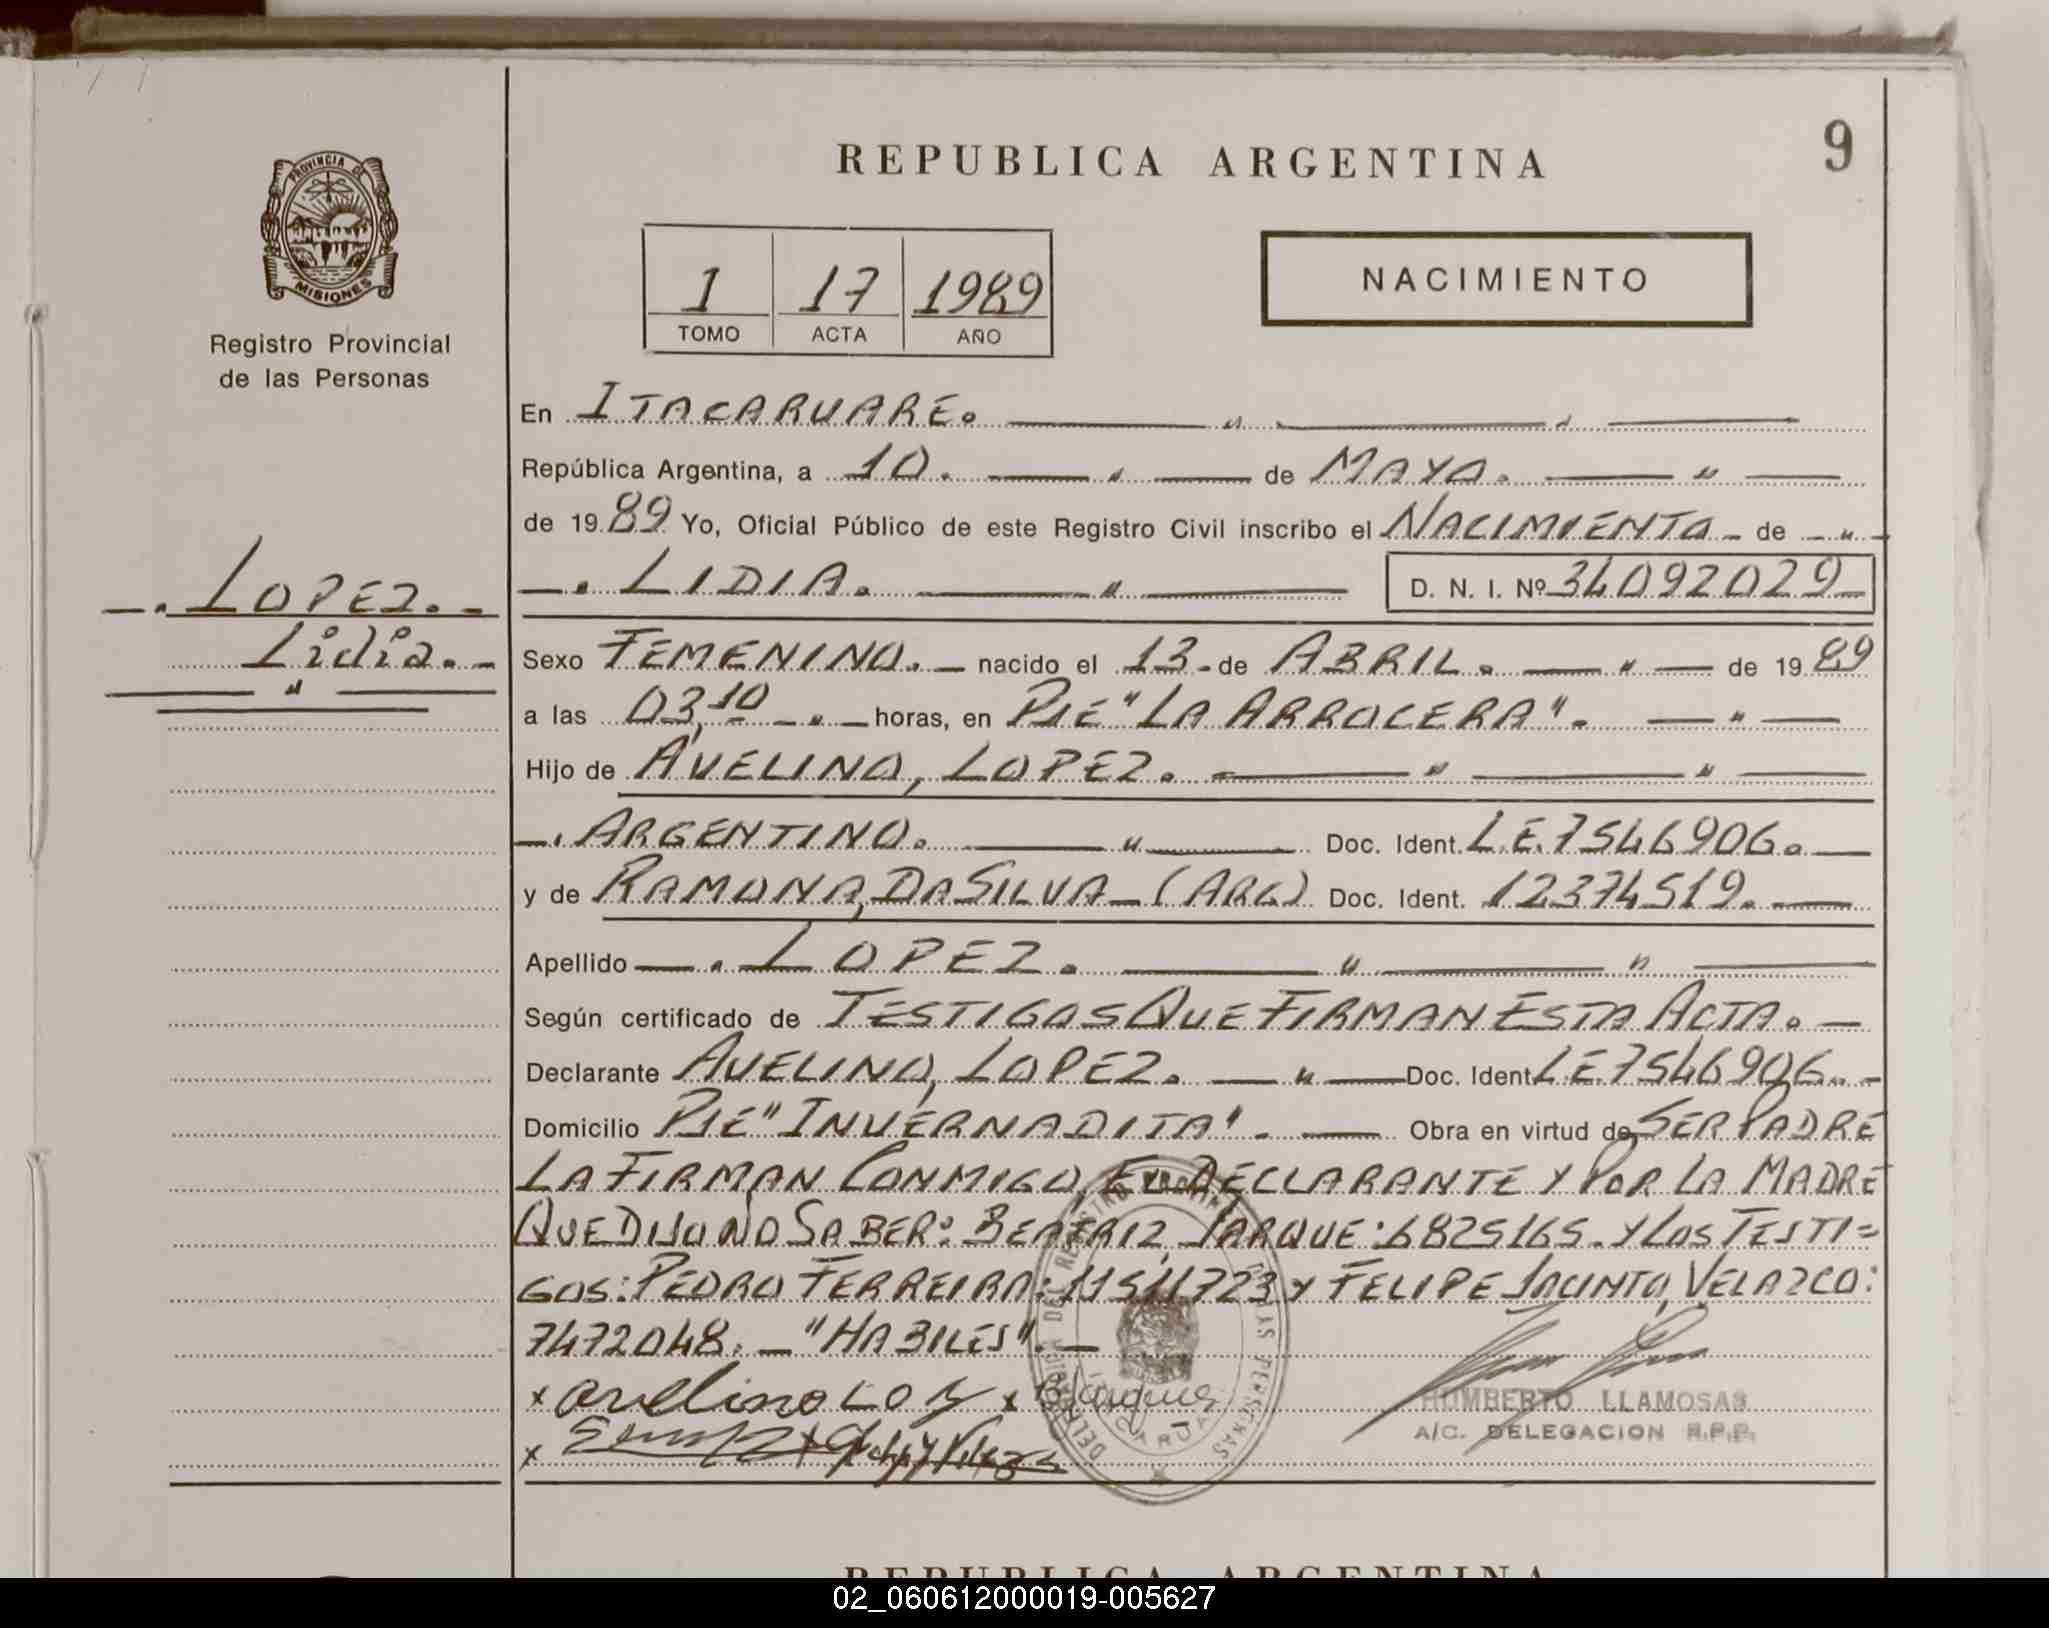 REPUBLICA ARGENTINA
9
PROVINCIA DE
MISIONES
Registro Provincial
de las Personas
1 17 1989
TOMO ACTA AÑO
NACIMIENTO
En ITACARUARE.
República Argentina, a 10. de MAYO.
de 1989 Yo, Oficial Público de este Registro Civil inscribo el NACIMIENTO de
LIDIA. D. N. I. Nº 34092029
LOPEZ.
Lidia.
Sexo FEMENINO. nacido el 13 de ABRIL. de 1989
a las 03,10 horas, en PJE "LA ARROCERA".
Hijo de AVELINO, LOPEZ.
ARGENTINO. Doc. Ident. L.E. 7546906.
y de RAMONA, DA SILVA (ARG) Doc. Ident. 12374519.
Apellido LOPEZ.
Según certificado de TESTIGOS QUE FIRMAN ESTA ACTA.
Declarante AVELINO, LOPEZ. Doc. Ident. LE 7546906.
Domicilio PJE "INVERNADITA". Obra en virtud de SER PADRE
LA FIRMAN CONMIGO, EL DECLARANTE Y POR LA MADRE
QUE DIJO NO SABER: BEATRIZ, JARQUE: 6825165. Y LOS TESTI=
GOS: PEDRO FERREIRA: 11511723 Y FELIPE JACINTO, VELAZCO:
7472048. "HABILES".
x avelino x
x
HUMBERTO LLAMOSAS
A/C. DELEGACION R.P.P.
REPUBLICA ARGENTINA
02_060612000019-005627